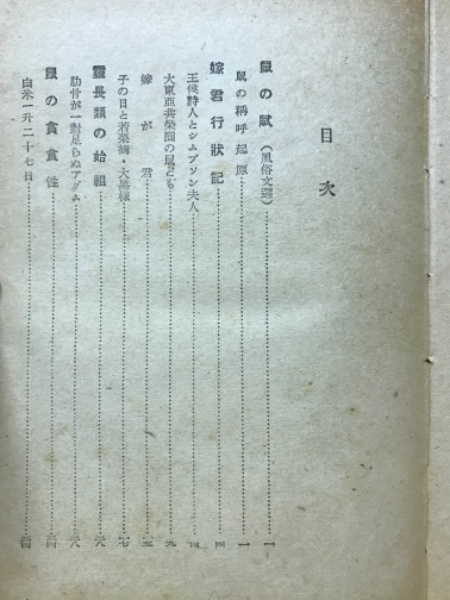 目次
鼠の賦(風俗文選)……一
鼠の稱呼起原……一
嫁君行狀記……四
王侯詩人とシムプソン夫人……四
大東亞共榮圈の鼠ども……九
嫁が君……五
子の日と若菜摘・大黑樣……七
靈長類の始祖……六
肋骨が一對足らぬアダム……六
鼠の貪食性……
白米一升二十七日……